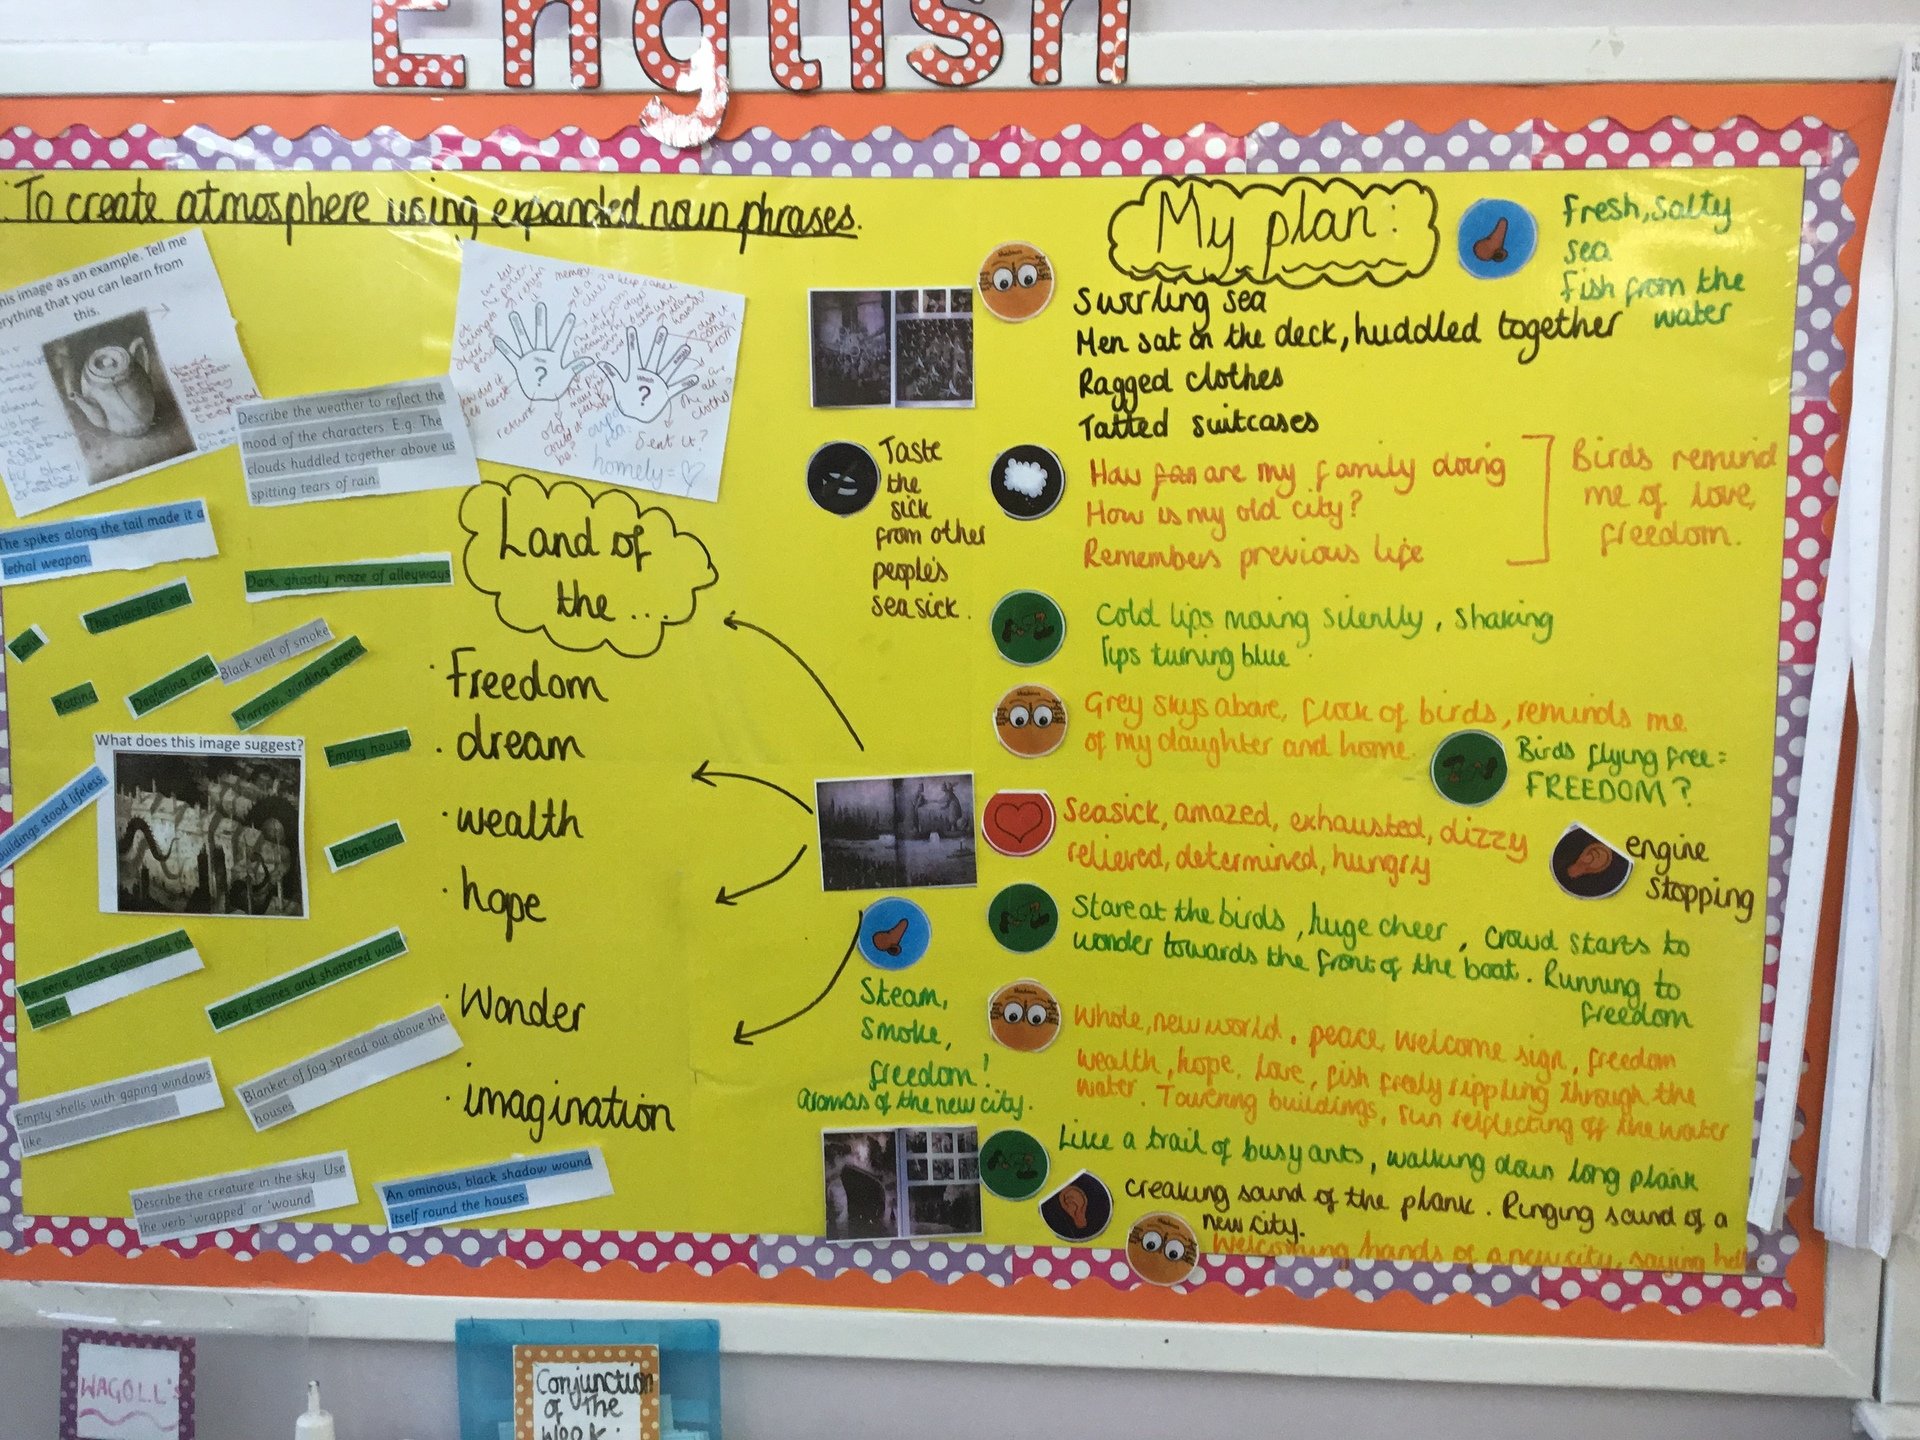 English
: To create atmosphere using expanded noun phrases.
his image as an example. Tell me
rything that you can learn from
this.
Describe the weather to reflect the
mood of the characters. E.g. The
clouds huddled together above us
spitting tears of rain.
?
?
Sent it?
homely =
The spikes along the tail made it a
lethal weapon.
Dark, ghostly maze of alleyways
The place felt
Black veil of smoke
Deafening cries
Narrow, winding streets
Rotting
Empty houses
What does this image suggest?
buildings stood lifeless.
Ghost town
An eerie, black gloom filled the
streets
Piles of stones and shattered walls
Blanket of fog spread out above the
houses
Empty shells with gaping windows
like
Describe the creature in the sky. Use
the verb 'wrapped' or 'wound'
An ominous, black shadow wound
itself round the houses.
Land of
the ...
· Freedom
· dream
· wealth
· hope
· Wonder
· imagination
My plan:
Fresh, salty
sea
Fish from the
water
Swirling sea
Men sat on the deck, huddled together
Ragged clothes
Tatted suitcases
Taste
the
sick
from other
people's
seasick.
How are my family doing
How is my old city?
Remembers previous life
Birds remind
me of love,
freedom.
Cold lips moving silently, shaking
lips turning blue
Grey skys above, flock of birds, reminds me
of my daughter and home.
Birds flying free =
FREEDOM?
Seasick, amazed, exhausted, dizzy
relieved, determined, hungry
engine
stopping
Stare at the birds, huge cheer, crowd starts to
wonder towards the front of the boat. Running to
freedom
Steam,
Smoke,
freedom!
aromas of the new city.
Whole, new world, peace, welcome sign, freedom
wealth, hope, love, fish freely rippling through the
water. Towering buildings, sun reflecting off the water
Like a trail of busy ants, walking down long plank
creaking sound of the plank. Ringing sound of a
new city.
Welcoming hands of a new city, saying hello
WAGOLL's
Conjunction
of the
Week: